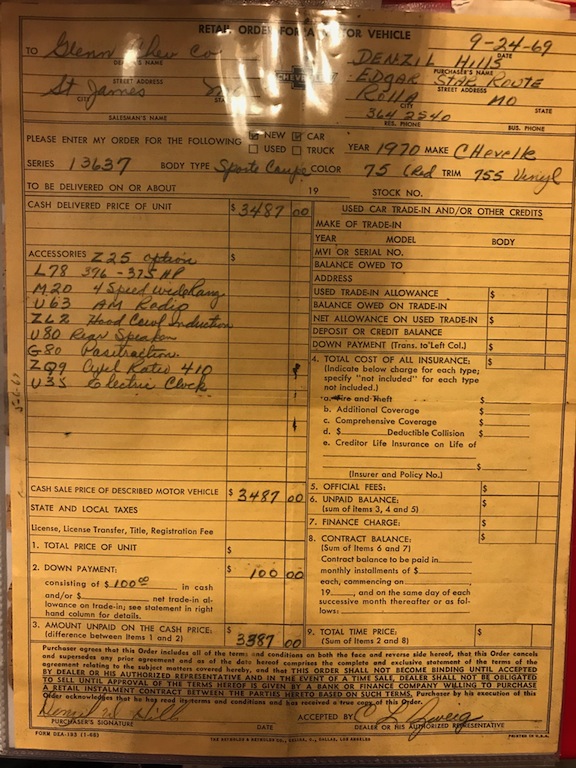 RETAIL ORDER FOR A MOTOR VEHICLE
9-24-69
DATE
TO Glenn Chev Co
DEALER'S NAME
DENZIL Hills
PURCHASER'S NAME
STREET ADDRESS
CHEVROLET
EDGAR STAR ROUTE
STREET ADDRESS
St James Mo
CITY STATE
ROLLA MO
CITY STATE
SALESMAN'S NAME
364 2540
RES. PHONE BUS. PHONE
PLEASE ENTER MY ORDER FOR THE FOLLOWING ☑ NEW ☑ CAR
☐ USED ☐ TRUCK YEAR 1970 MAKE CHevelle
SERIES 13637 BODY TYPE Sports Coupe COLOR 75 (Red TRIM 755 Vinyl
TO BE DELIVERED ON OR ABOUT 19 STOCK NO.
CASH DELIVERED PRICE OF UNIT $ 3487 00
ACCESSORIES Z25 option $
L78 396 - 375 HP
M20 4 Speed wide Rang
U63 AM Radio
ZL2 Hood Cowl Induction
U80 Rear Speaker
G80 Positraction
ZQ9 Axel Ratio 410
U35 Electric Clock
CASH SALE PRICE OF DESCRIBED MOTOR VEHICLE $ 3487 00
STATE AND LOCAL TAXES
License, License Transfer, Title, Registration Fee
1. TOTAL PRICE OF UNIT $
2. DOWN PAYMENT: $ 100 00
consisting of $ 100 00 in cash
and/or $ net trade-in al-
lowance on trade-in; see statement in right
hand column for details.
3. AMOUNT UNPAID ON THE CASH PRICE:
(difference between Items 1 and 2) $ 3387 00
USED CAR TRADE-IN AND/OR OTHER CREDITS
MAKE OF TRADE-IN
YEAR MODEL BODY
MVI OR SERIAL NO.
BALANCE OWED TO
ADDRESS
USED TRADE-IN ALLOWANCE $
BALANCE OWED ON TRADE-IN
NET ALLOWANCE ON USED TRADE-IN $
DEPOSIT OR CREDIT BALANCE
DOWN PAYMENT (Trans. to Left Col.) $
4. TOTAL COST OF ALL INSURANCE: $
(Indicate below charge for each type;
specify "not included" for each type
not included.)
a. Fire and Theft $
b. Additional Coverage $
c. Comprehensive Coverage $
d. $ Deductible Collision $
e. Creditor Life Insurance on Life of
$
(Insurer and Policy No.)
5. OFFICIAL FEES: $
6. UNPAID BALANCE: $
(sum of items 3, 4 and 5)
7. FINANCE CHARGE: $
8. CONTRACT BALANCE: $
(Sum of Items 6 and 7)
Contract balance to be paid in
monthly installments of $
each, commencing on
19 , and on the same day of each
successive month thereafter or as fol-
lows:
9. TOTAL TIME PRICE: $
(Sum of Items 2 and 8)
Purchaser agrees that this Order includes all of the terms and conditions on both the face and reverse side hereof, that this Order cancels
and supersedes any prior agreement and as of the date hereof comprises the complete and exclusive statement of the terms of the
agreement relating to the subject matters covered hereby, and that THIS ORDER SHALL NOT BECOME BINDING UNTIL ACCEPTED
BY DEALER OR HIS AUTHORIZED REPRESENTATIVE AND IN THE EVENT OF A TIME SALE, DEALER SHALL NOT BE OBLIGATED
TO SELL UNTIL APPROVAL OF THE TERMS HEREOF IS GIVEN BY A BANK OR FINANCE COMPANY WILLING TO PURCHASE
A RETAIL INSTALMENT CONTRACT BETWEEN THE PARTIES HERETO BASED ON SUCH TERMS. Purchaser by his execution of this
Order acknowledges that he has read its terms and conditions and has received a true copy of this Order.
Denzil Hills ACCEPTED BY:
PURCHASER'S SIGNATURE DATE DEALER OR HIS AUTHORIZED REPRESENTATIVE
FORM DEA-193 (1-68) PRINTED IN U.S.A.